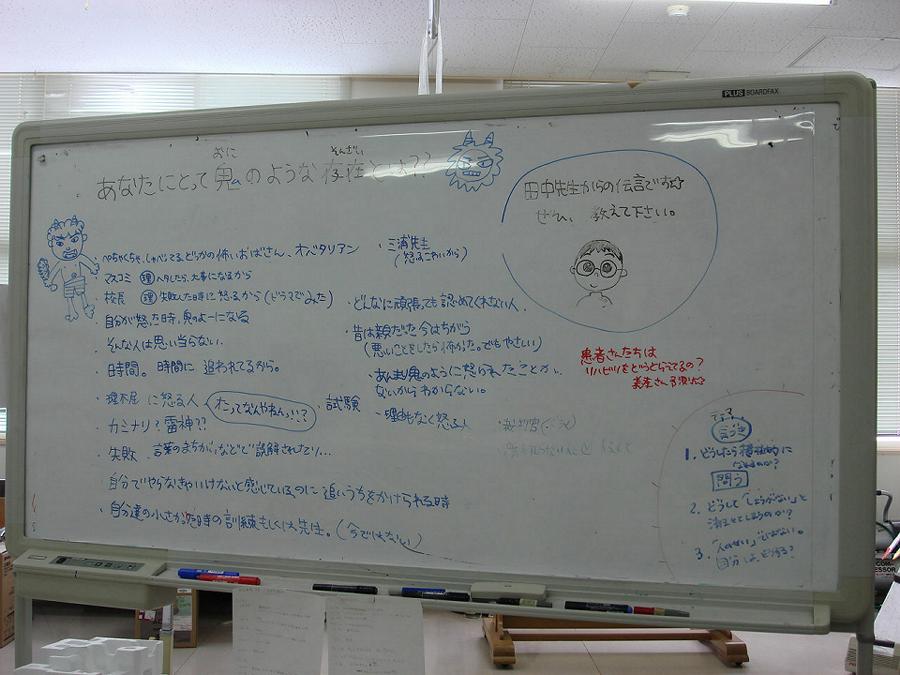 PLUS BOARDFAX
おに
そんざい
あなたにとって鬼のような存在とは??
田中先生からの伝言です
ぜひ、教えて下さい。
ぺちゃくちゃ、しゃべってる、どっかの怖いおばさん、オバタリアン
マスコミ 理 ヘタしたら、大事になるから
・校長 理 失敗した時に怒るから(ドラマでみた)
・自分が怒った時、鬼のよーになる
・そんな人は思い当らない。
・時間。時間に追われてるから。
・理不尽に怒る人
・試験
・カミナリ?雷神??
・失敗 言葉のまちがいなどで誤解されたり...
・自分でやらなきゃいけないと感じているのに追いうちをかけられる時
・自分達の小さかった時の訓練もしくは先生。(今ではない)
・三浦先生
(怒るとこわいから)
・どんなに頑張っても認めてくれない人.
・昔は親だった今はちがう
(悪いことをしたら怖かった。でもやさしい)
・あんまり鬼のように怒られたことが
ないからわからない。
・理由もなく怒る人
患者さんたちは
リハビリをどうとらってるの?
テーマ
1. どうしたら積極的に
なれるのか?
問う
2. どうして「しょうがない」と
3. 「人のせい」ではない。
自分は、どうする?